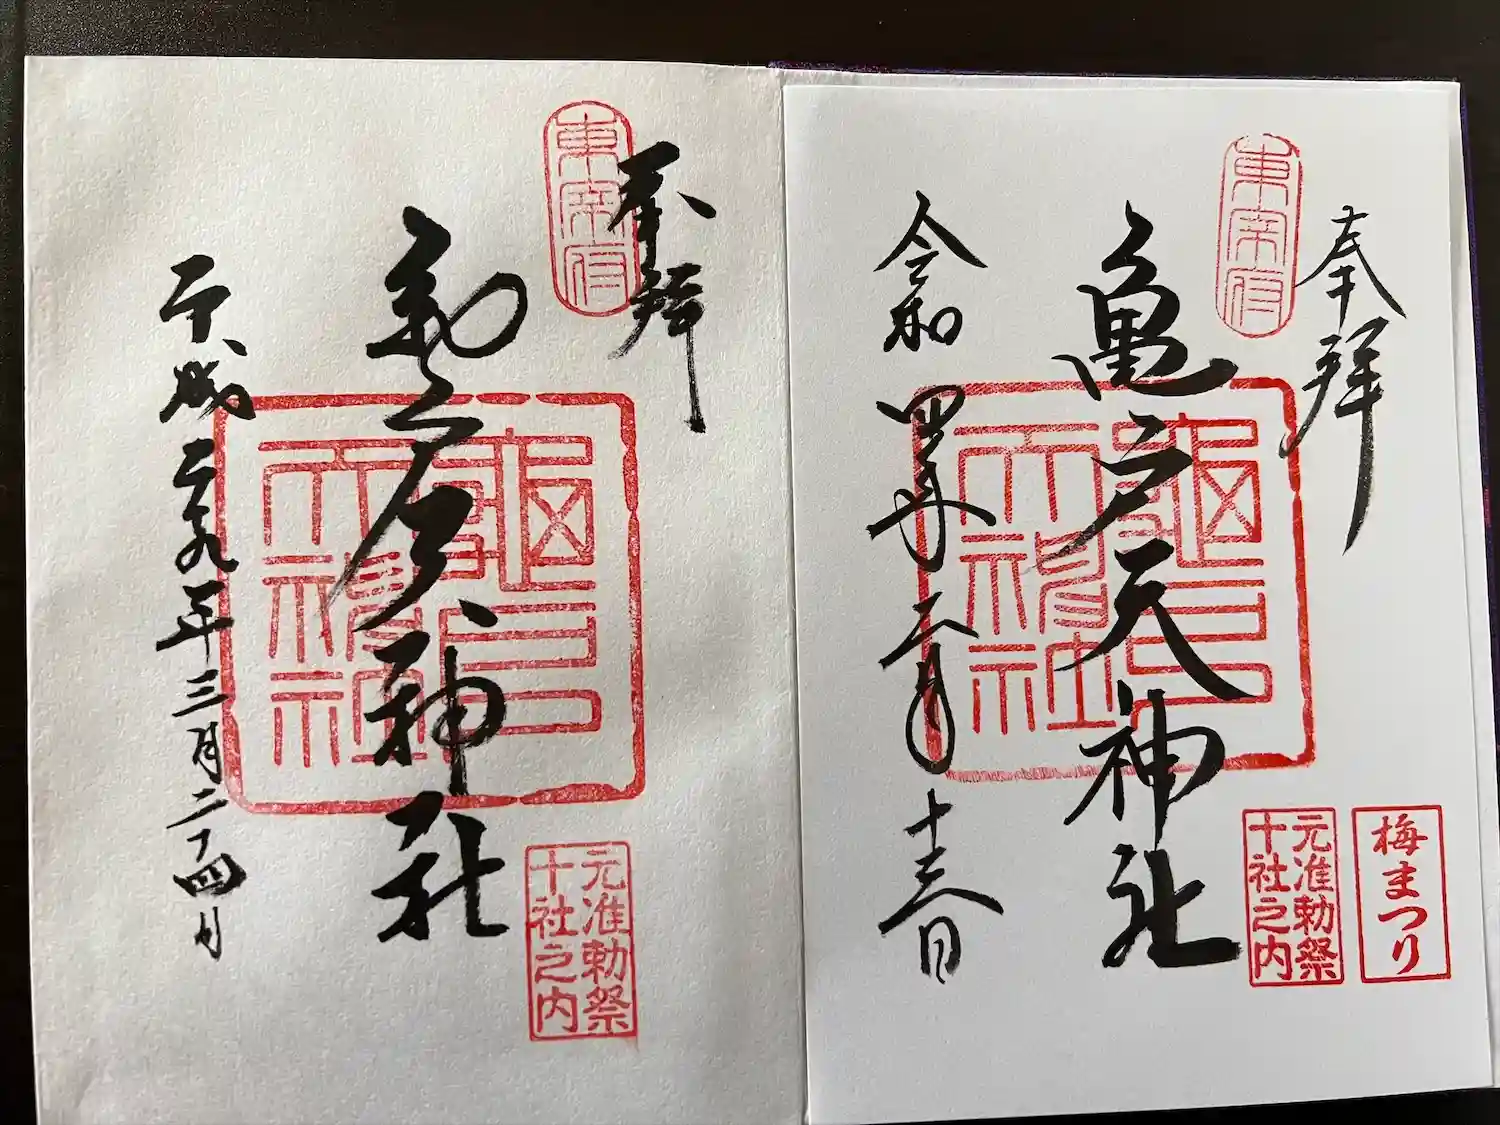 奉拝
東宰府
亀戸天神社
龜戸
天神社
令和四年二月十三日
梅まつり
元准勅祭
十社之内
奉拝
東宰府
亀戸天神社
龜戸
天神社
平成二十九年三月二十四日
元准勅祭
十社之内